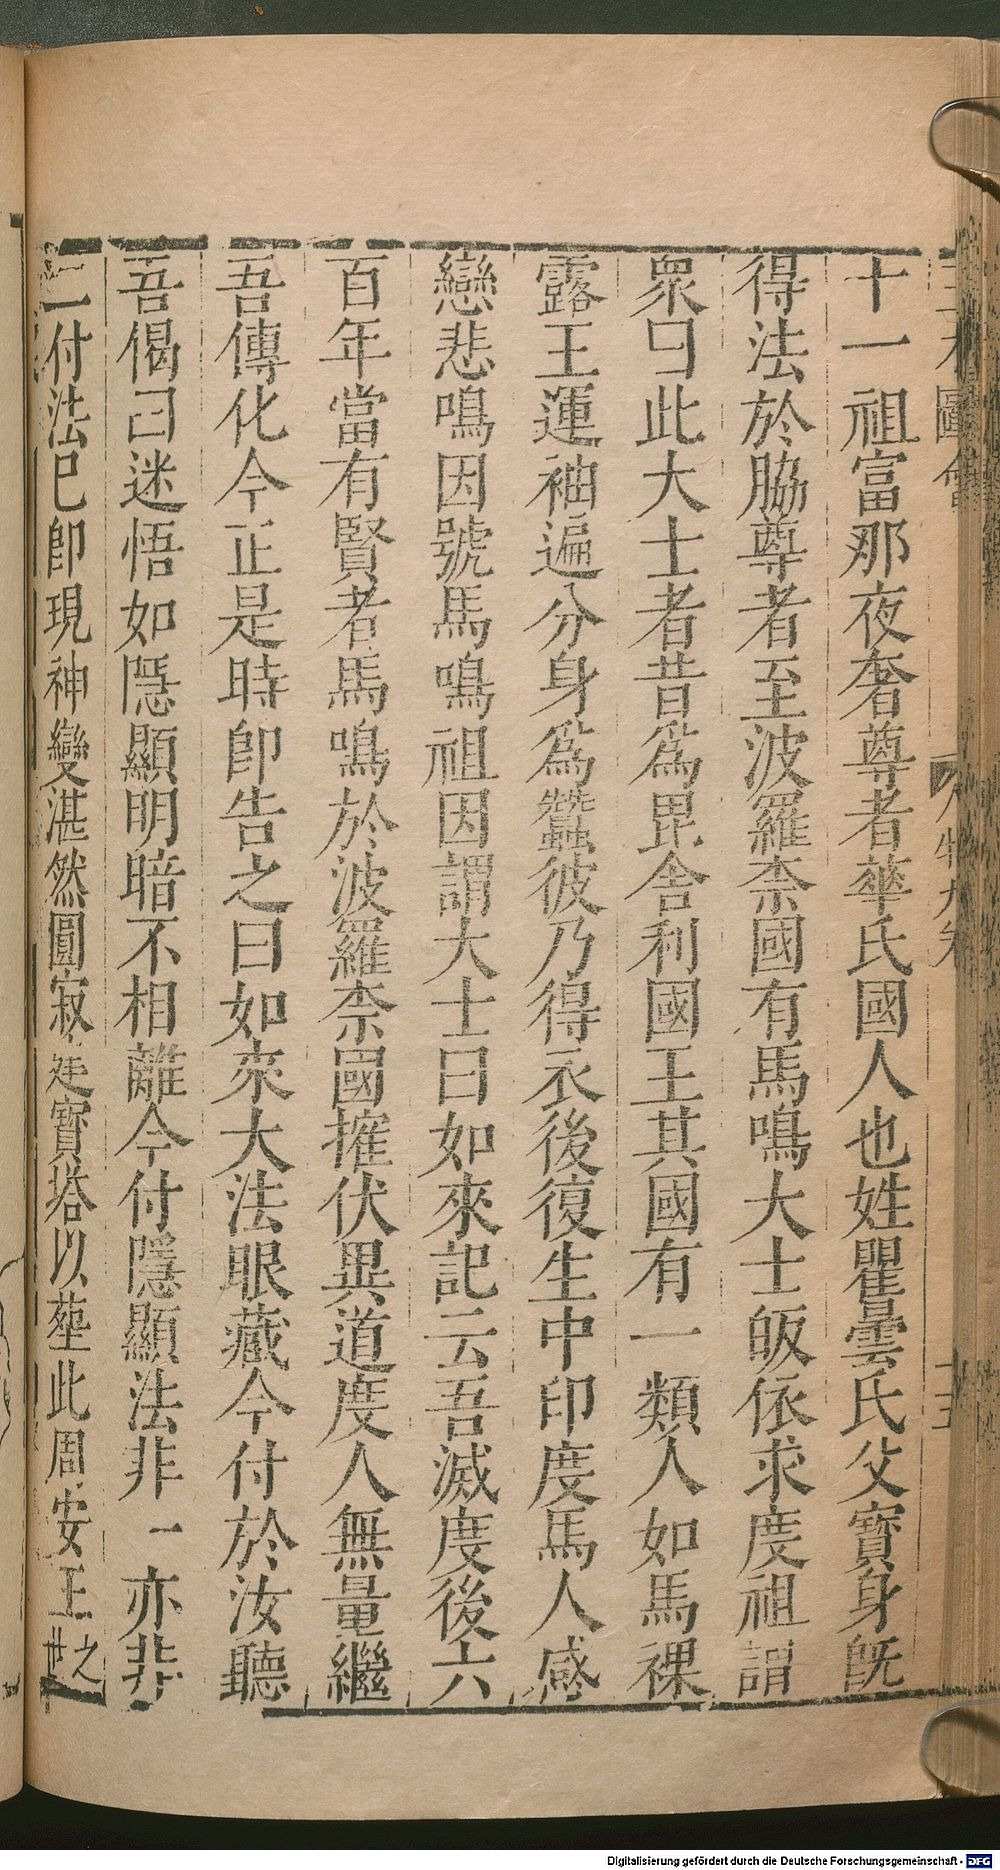 十一祖富那夜奢尊者華氏國人也姓瞿曇氏父寶身旣
得法於脇尊者至波羅柰國有馬鳴大士皈依求度祖謂
衆曰此大士者昔爲毘舍利國王其國有一類人如馬裸
露王運神通分身爲蠶彼乃得衣後復生中印度馬人感
戀悲鳴因號馬鳴祖因謂大士曰如來記云吾滅度後六
百年當有賢者馬鳴於波羅柰國摧伏異道度人無量繼
吾傳化今正是時卽告之曰如來大法眼藏今付於汝聽
吾偈曰迷悟如隱顯明暗不相離今付隱顯法非一亦非
二付法已卽現神變湛然圓寂建寶塔以塟此周安王之世
圖會
Digitalisierung gefördert durch die Deutsche Forschungsgemeinschaft - DFG